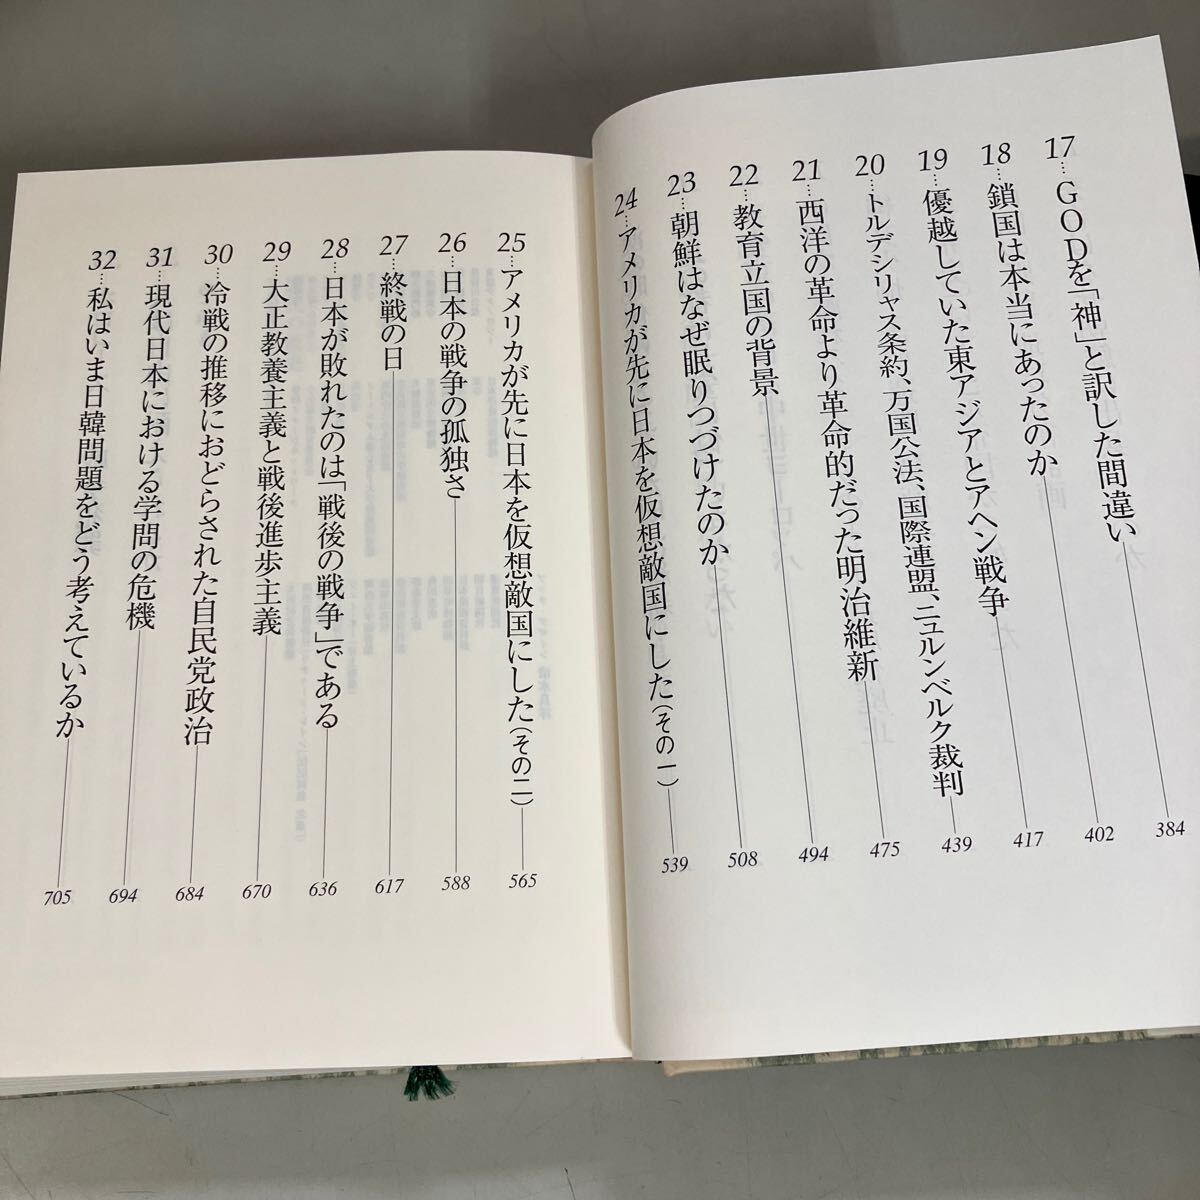 17…GODを「神」と訳した間違い 384
18…鎖国は本当にあったのか 402
19…優越していた東アジアとアヘン戦争 417
20…トルデシリャス条約、万国公法、国際連盟、ニュルンベルク裁判 439
21…西洋の革命より革命的だった明治維新 475
22…教育立国の背景 494
23…朝鮮はなぜ眠りつづけたのか 508
24…アメリカが先に日本を仮想敵国にした(その一) 539
25…アメリカが先に日本を仮想敵国にした(その二) 565
26…日本の戦争の孤独さ 588
27…終戦の日 617
28…日本が敗れたのは「戦後の戦争」である 636
29…大正教養主義と戦後進歩主義 670
30…冷戦の推移におどらされた自民党政治 684
31…現代日本における学問の危機 694
32…私はいま日韓問題をどう考えているか 705